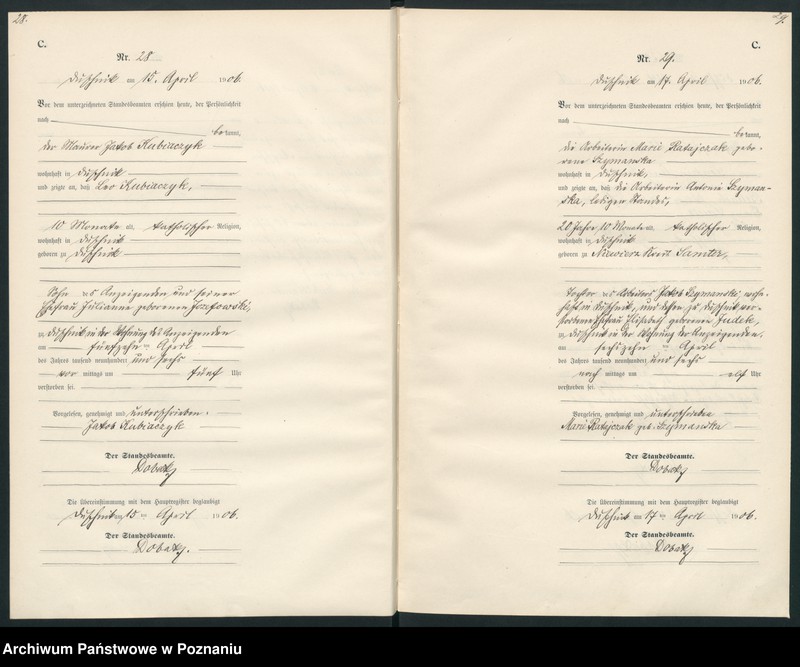 28.
C.
Nr. 28
Duschnik am 15. April 1906.
Vor dem unterzeichneten Standesbeamten erschien heute, der Persönlichkeit
nach
bekannt,
der Maurer Jakob Kubiaczyk
wohnhaft in Duschnik
und zeigte an, daß Leo Kubiaczyk,
10 Monate alt, katholischer Religion,
wohnhaft in Duschnik
geboren zu Duschnik
Sohn des Anzeigenden und seiner
Ehefrau Julianna geborenen Jozefowski,
zu Duschnik in der Wohnung des Anzeigenden
am fünfzehnten April
des Jahres tausend neunhundert und sechs
vor mittags um fünf Uhr
verstorben sei.
Vorgelesen, genehmigt und unterschrieben.
Jakob Kubiaczyk
Der Standesbeamte.
Dobatz
Die Übereinstimmung mit dem Hauptregister beglaubigt
Duschnik am 15ten April 1906.
Der Standesbeamte.
Dobatz.
29.
C.
Nr. 29.
Duschnik am 17. April 1906.
Vor dem unterzeichneten Standesbeamten erschien heute, der Persönlichkeit
nach
bekannt,
die Arbeiterin Marie Ratajczak gebo-
rene Szymanska
wohnhaft in Duschnik,
und zeigte an, daß die Arbeiterin Antonie Szyman-
ska, ledigen Standes,
20 Jahre, 10 Monate alt, katholischer Religion,
wohnhaft in Duschnik
geboren zu Niewierz Kreis Samter,
Tochter des Arbeiters Jakob Szymanski, wohn-
haft in Duschnik, und dessen zu Duschnik ver-
storbenen Ehefrau Elisabet geborenen Judek,
zu Duschnik in der Wohnung der Anzeigenden,
am sechszehnten April
des Jahres tausend neunhundert und sechs
nach mittags um elf Uhr
verstorben sei.
Vorgelesen, genehmigt und unterschrieben
Marie Ratajczak geb. Szymanska
Der Standesbeamte.
Dobatz
Die Übereinstimmung mit dem Hauptregister beglaubigt
Duschnik am 17ten April 1906.
Der Standesbeamte.
Dobatz
Archiwum Państwowe w Poznaniu